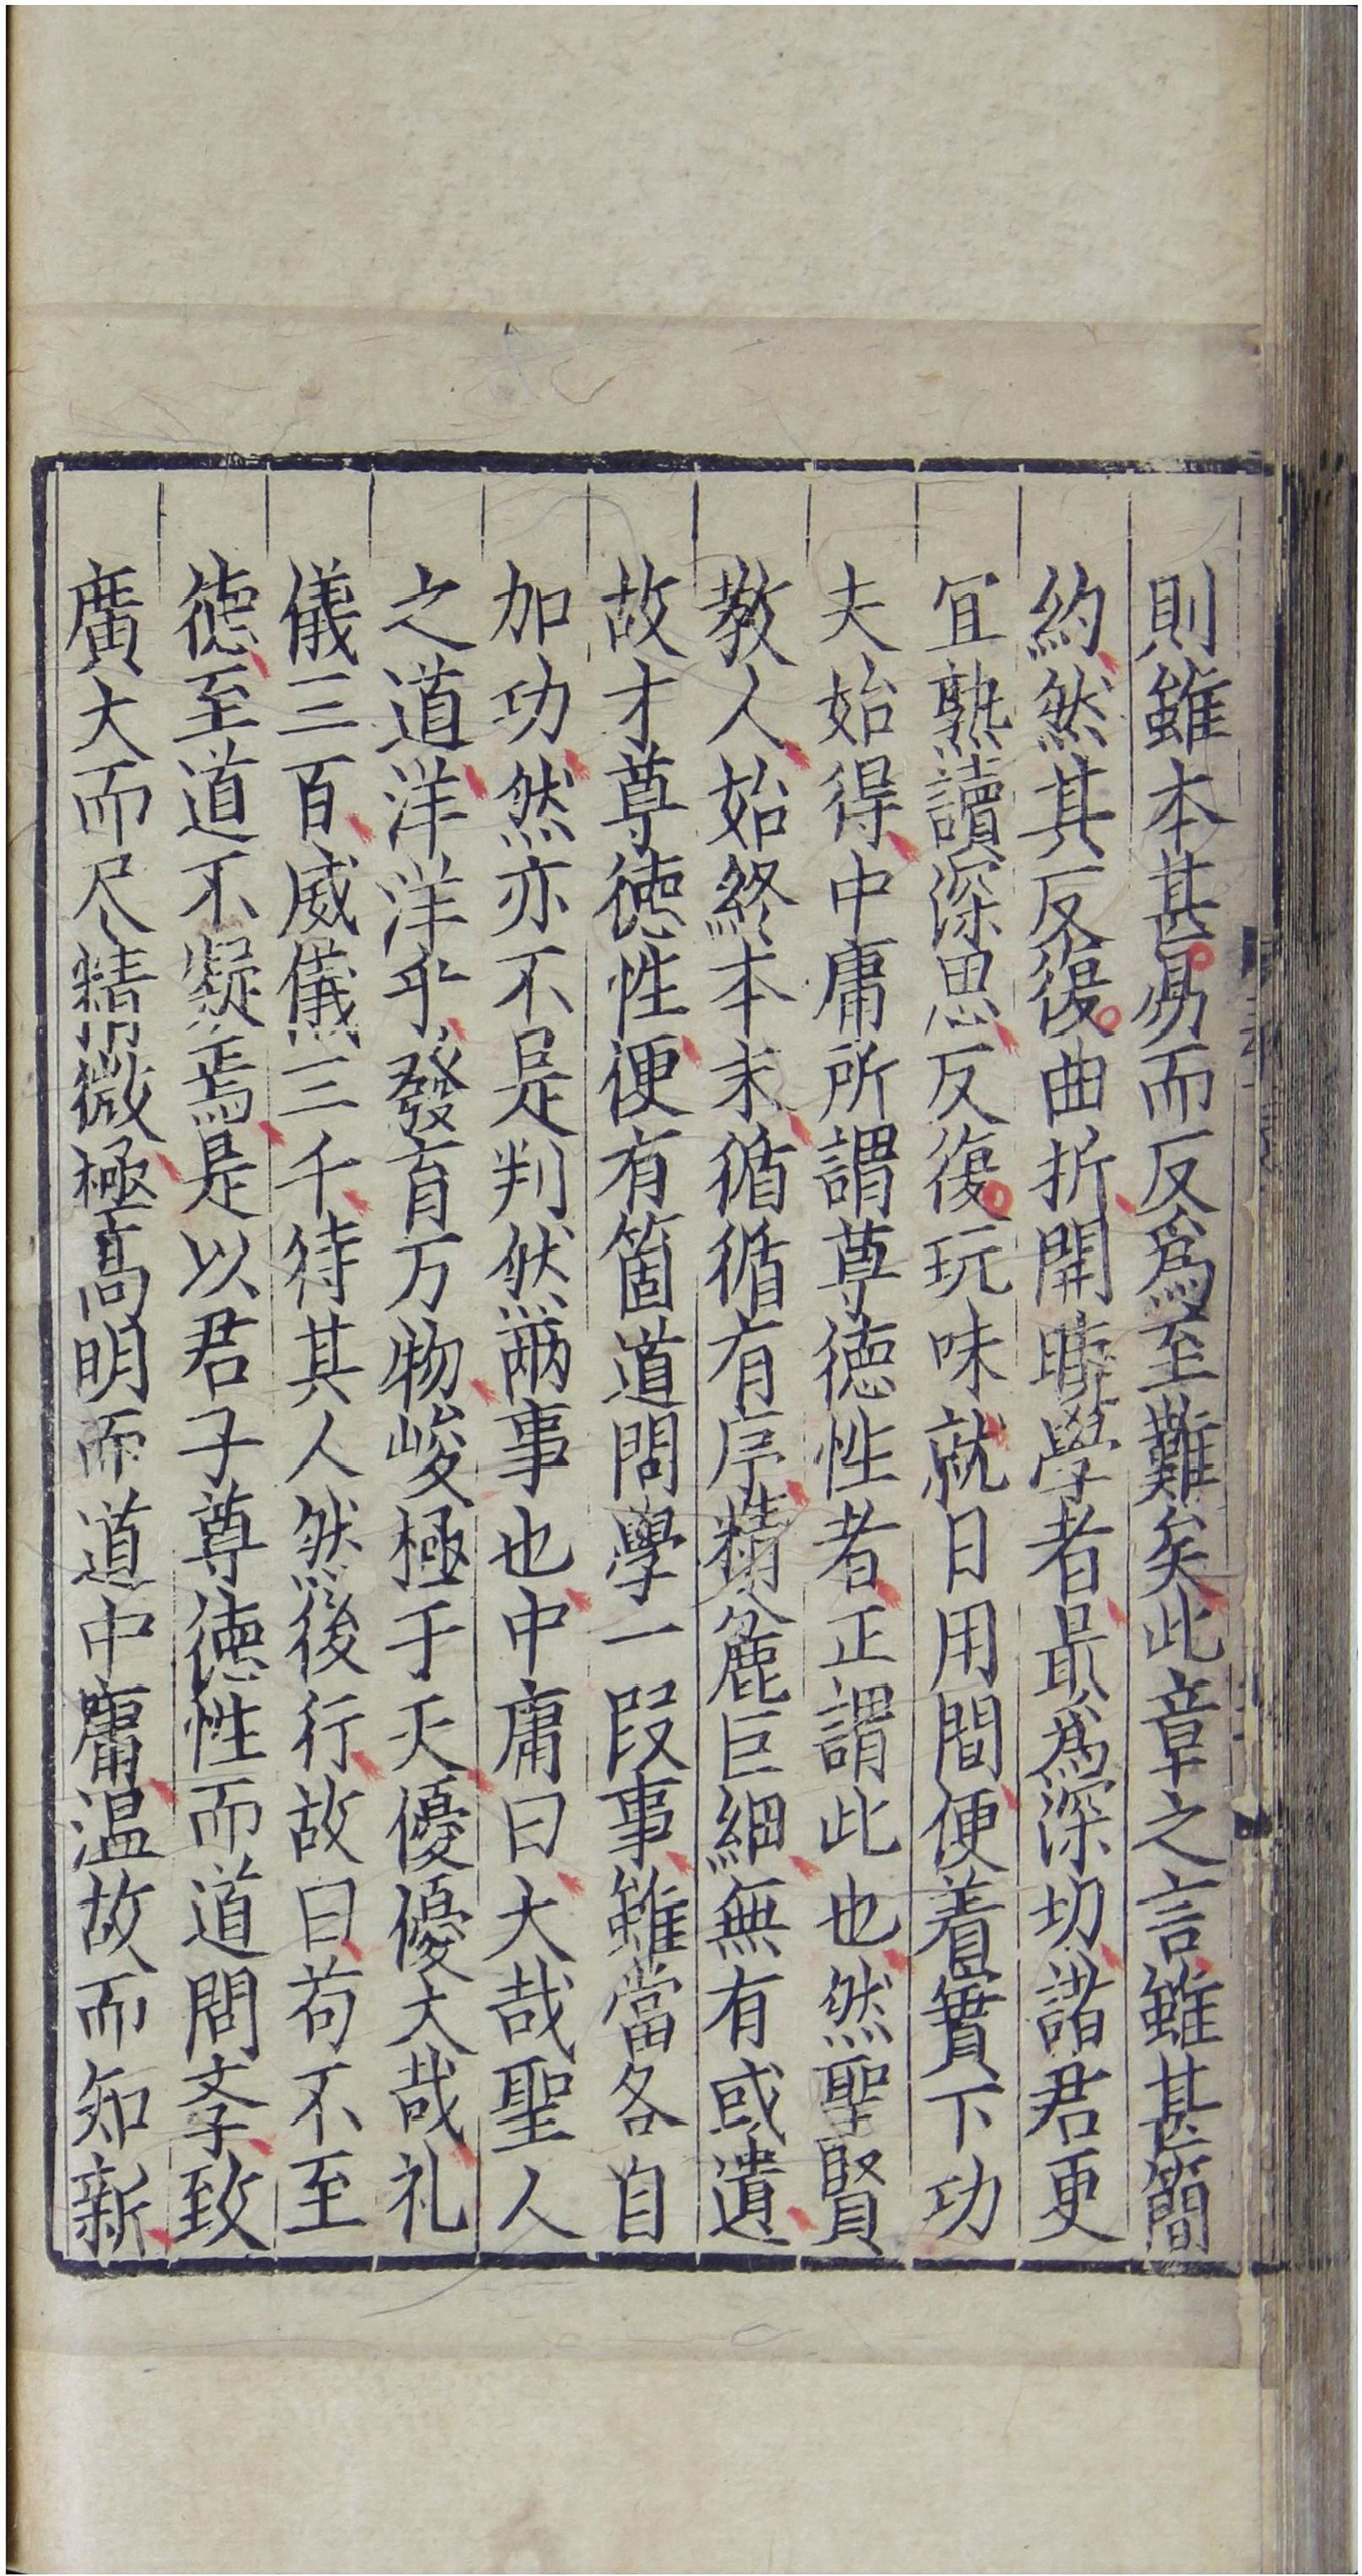 則雖本甚易而反爲至難矣此章之言雖甚簡
約然其反復曲折開曉學者最爲深切諸君更
宜熟讀深思反復玩味就日用間便着實下功
夫始得中庸所謂尊徳性者正謂此也然聖賢
教人始終本末循循有序精麁巨細無有或遺
故才尊徳性便有箇道問學一段事雖當各自
加功然亦不是判然兩事也中庸曰大哉聖人
之道洋洋乎發育万物峻極于天優優大哉礼
儀三百威儀三千待其人然後行故曰苟不至
徳至道不凝焉是以君子尊徳性而道問斈致
廣大而尽精微極髙明而道中庸温故而知新